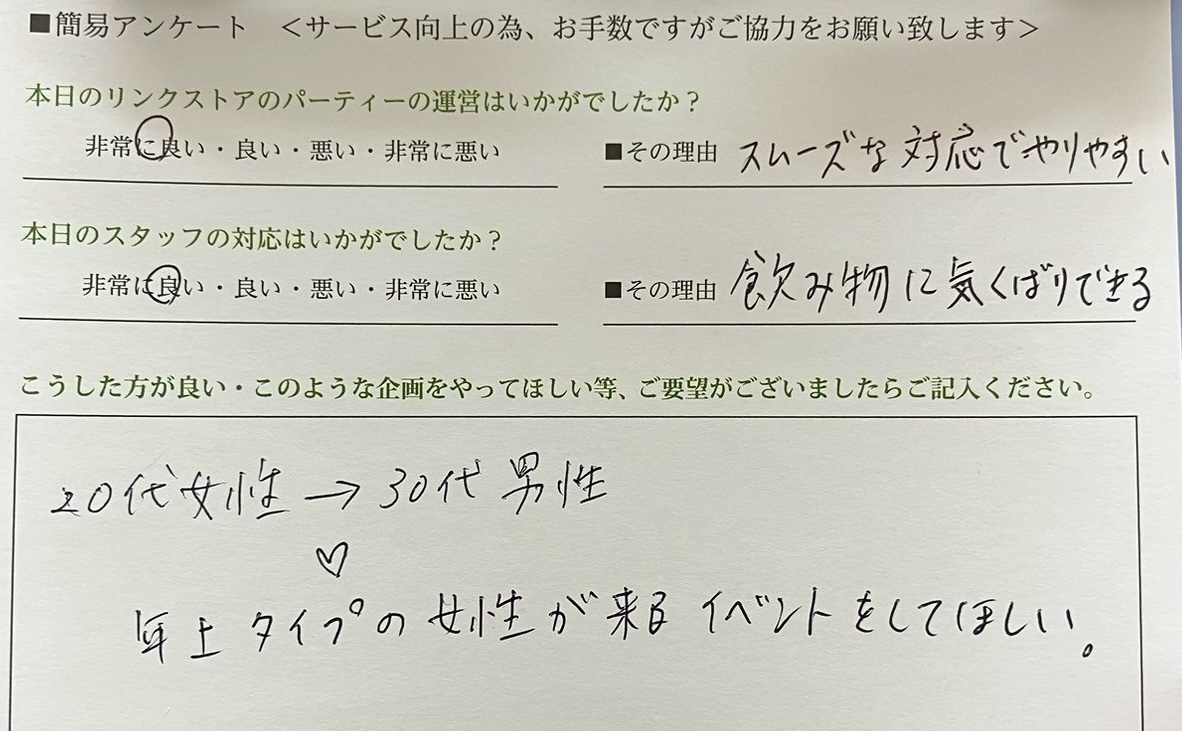 ■簡易アンケート ＜サービス向上の為、お手数ですがご協力をお願い致します＞
本日のリンクストアのパーティーの運営はいかがでしたか？
非常に良い・良い・悪い・非常に悪い ■その理由 スムーズな対応でやりやすい
本日のスタッフの対応はいかがでしたか？
非常に良い・良い・悪い・非常に悪い ■その理由 飲み物に気くばりできる
こうした方が良い・このような企画をやってほしい等、ご要望がございましたらご記入ください。
20代女性→30代男性
♡
年上タイプの女性が来るイベントをしてほしい。